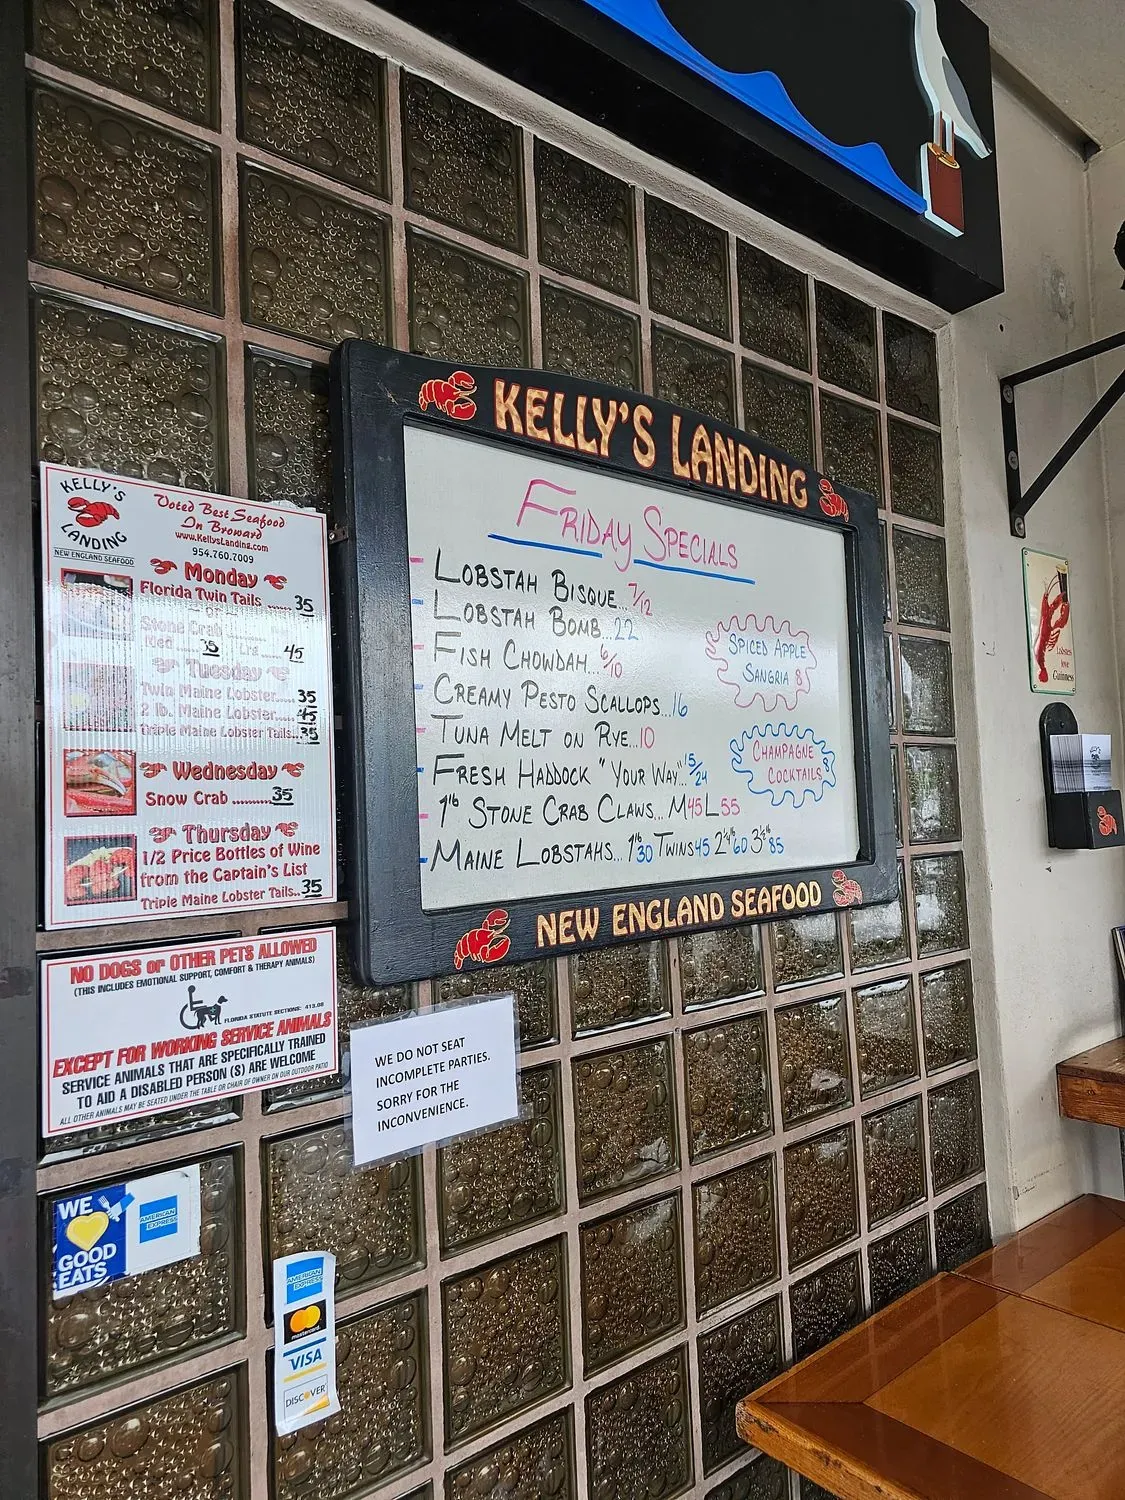 KELLY'S LANDING
FRIDAY SPECIALS
LOBSTAH BISQUE... 7/12
LOBSTAH BOMB...22
FISH CHOWDAH...6/10
CREAMY PESTO SCALLOPS...16
TUNA MELT ON RYE...10
FRESH HADDOCK "YOUR WAY"...15/24
1lb STONE CRAB CLAWS... M45 L55
MAINE LOBSTAHS... 1lb 30 TWINS 45 2¼lb 60 3½lb 85
SPICED APPLE
SANGRIA 8
CHAMPAGNE
COCKTAILS 8
NEW ENGLAND SEAFOOD
KELLY'S
LANDING
NEW ENGLAND SEAFOOD
Voted Best Seafood
In Broward
www.KellysLanding.com
954.760.7009
Monday
Florida Twin Tails ...... 35
or
Stone Crab
Med ... 35 Lrg ... 45
Tuesday
Twin Maine Lobster..... 35
2 lb. Maine Lobster..... 45
Triple Maine Lobster Tails... 35
Wednesday
Snow Crab ..........35
Thursday
1/2 Price Bottles of Wine
from the Captain's List
Triple Maine Lobster Tails.. 35
NO DOGS or OTHER PETS ALLOWED
(THIS INCLUDES EMOTIONAL SUPPORT, COMFORT & THERAPY ANIMALS)
FLORIDA STATUTE SECTIONS: 413.08
EXCEPT FOR WORKING SERVICE ANIMALS
SERVICE ANIMALS THAT ARE SPECIFICALLY TRAINED
TO AID A DISABLED PERSON (S) ARE WELCOME
ALL OTHER ANIMALS MAY BE SEATED UNDER THE TABLE OR CHAIR OF OWNER ON OUR OUTDOOR PATIO
WE DO NOT SEAT
INCOMPLETE PARTIES.
SORRY FOR THE
INCONVENIENCE.
WE
GOOD
EATS
AMERICAN
EXPRESS
AMERICAN
EXPRESS
mastercard
VISA
DISCOVER
Lobsters
love
Guinness